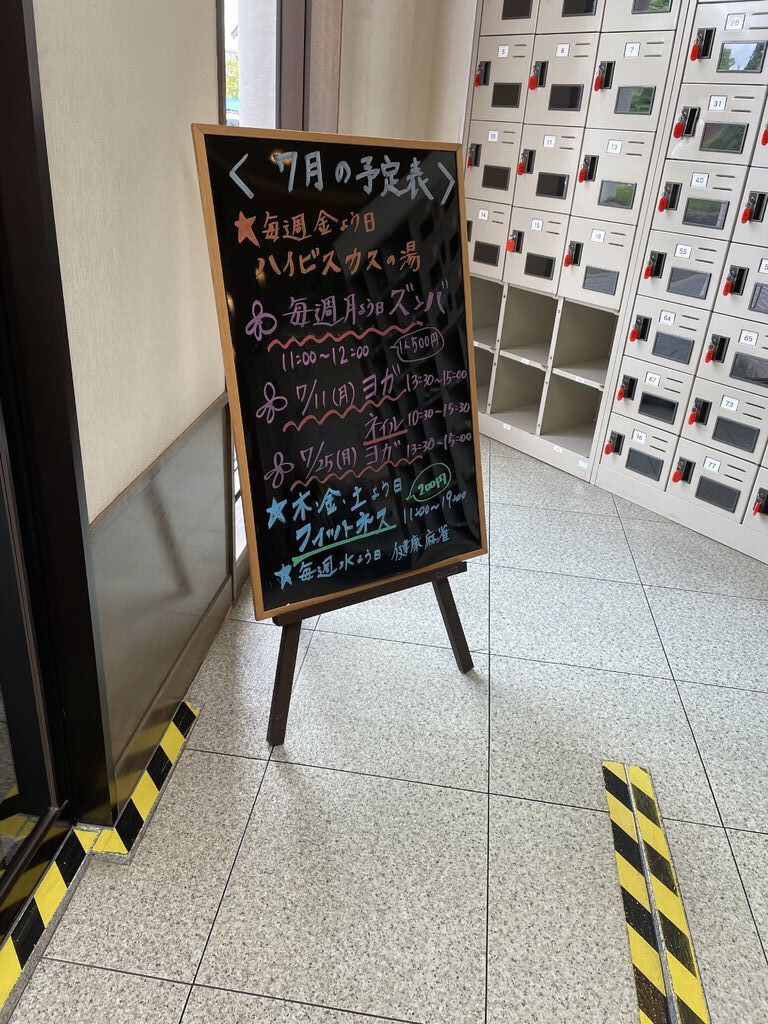 < 7月の予定表 >
★毎週金よう日
ハイビスカスの湯
毎週月よう日 ズンバ
11:00~12:00 1人500円
7/11(月) ヨガ 13:30~15:00
ネイル 10:30~15:30
7/25(月) ヨガ 13:30~15:00
★木・金・土よう日 200円
フィットネス 11:00~19:00
★毎週水よう日 健康麻雀
5 6 7
10 11 13
14 15 18
28
31
40
55
64 65
67 73
76 77